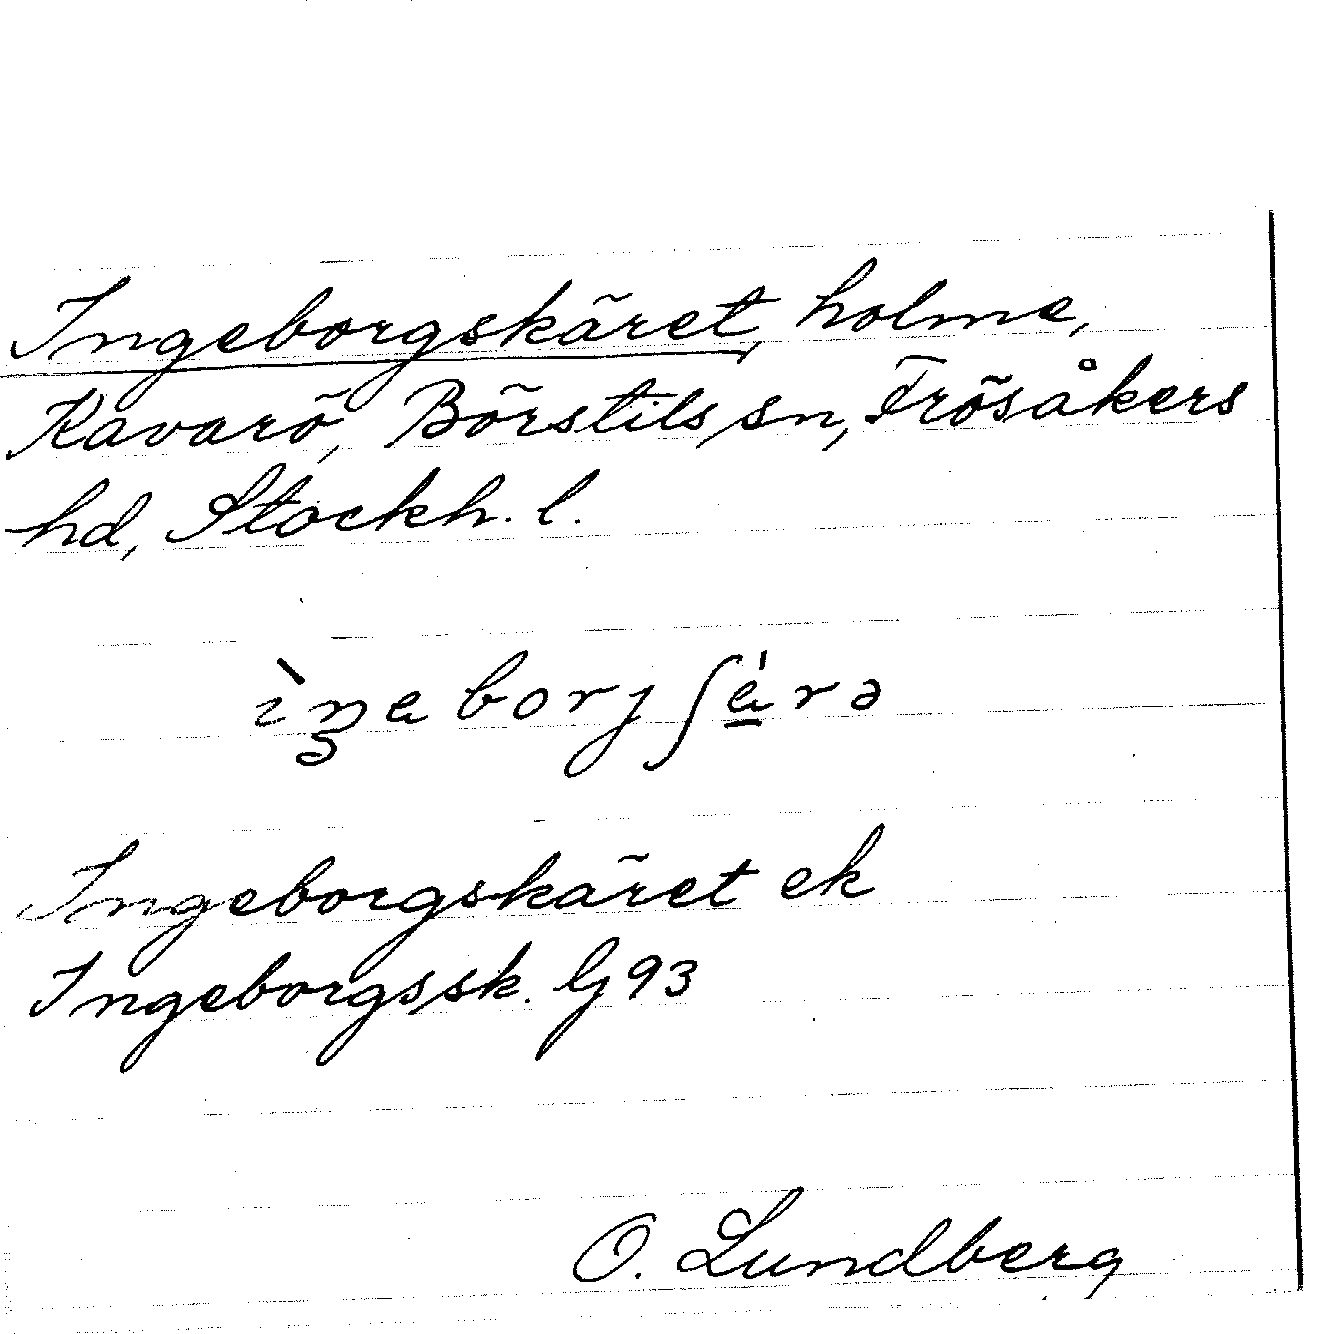 Ingeborgskäret, holme,
Kavarö, Börstils sn, Frösåkers
hd, Stockh. l.
ìŋeborjʃä̀rə
Ingeborgskäret ek
Ingeborgssk. Gj 93
O. Lundberg